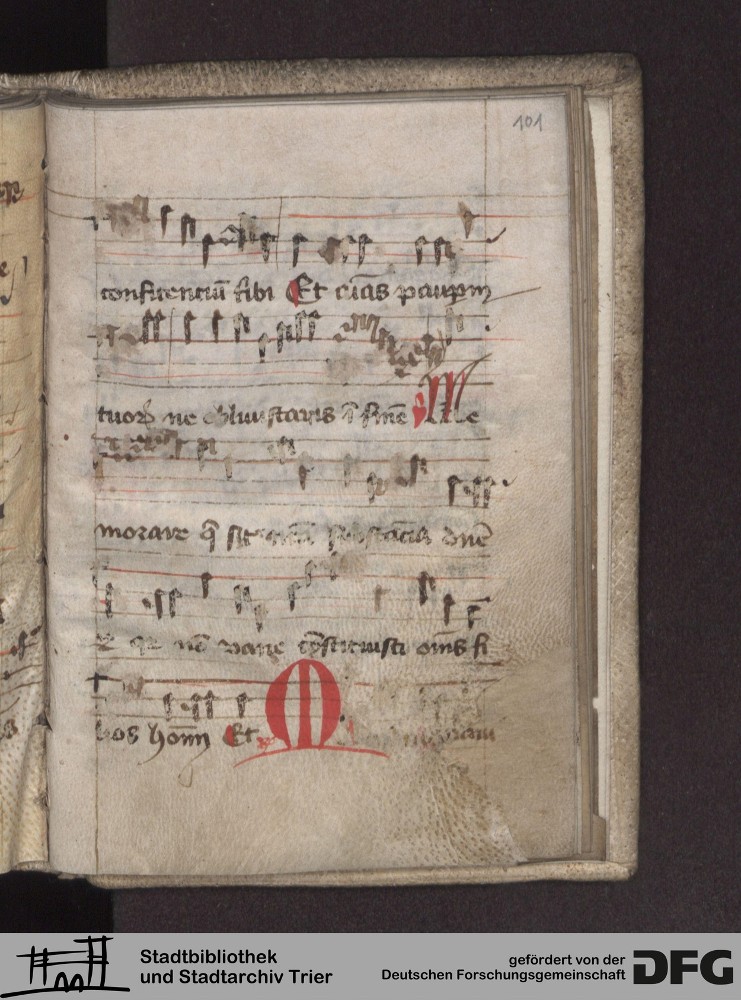 101
confitenciū tibi Et aīas paupm
tuoꝝ ne obliuiscaris ī finē Me
morare q̄ sit substācia
nō vane ꝯstituisti oīns fi
lios hoīm Et M
Stadtbibliothek
und Stadtarchiv Trier
gefördert von der
Deutschen Forschungsgemeinschaft
DFG